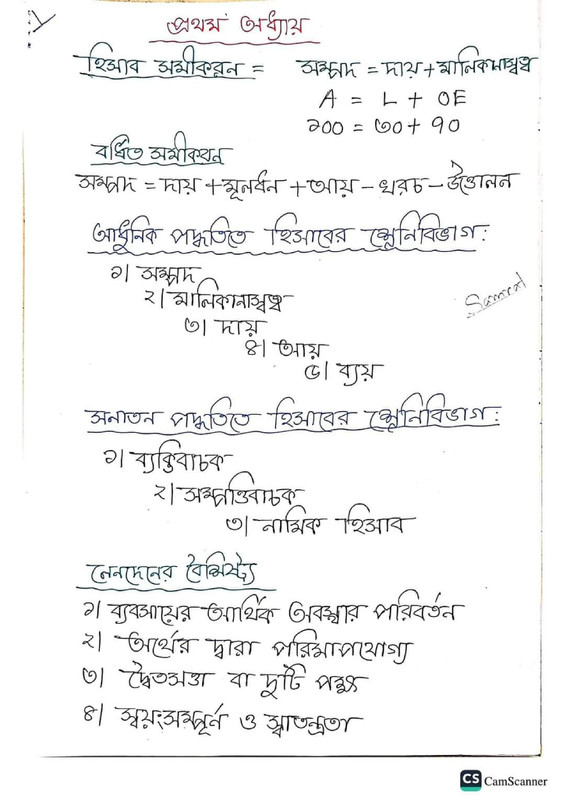 প্রথম অধ্যায়
হিসাব সমীকরন = সম্পদ = দায় + মালিকানাস্বত্ব
A = L + OE
১০০ = ৩০ + ৭০
বর্ধিত সমীকরন
সম্পদ = দায় + মূলধন + আয় - খরচ - উত্তোলন
আধুনিক পদ্ধতিতে হিসাবের শ্রেনিবিভাগ:
১। সম্পদ
২। মালিকানাস্বত্ব
৩। দায়
৪। আয়
৫। ব্যয়
সনাতন পদ্ধতিতে হিসাবের শ্রেনিবিভাগ:
১। ব্যক্তিবাচক
২। সম্পত্তিবাচক
৩। নামিক হিসাব
লেনদেনের বৈশিষ্ট্য
১। ব্যবসায়ের আর্থিক অবস্থার পরিবর্তন
২। অর্থের দ্বারা পরিমাপযোগ্য
৩। দ্বৈতসত্তা বা দুটি পক্ষ
৪। স্বয়ংসম্পূর্ন ও স্বাতন্ত্রতা
CS CamScanner